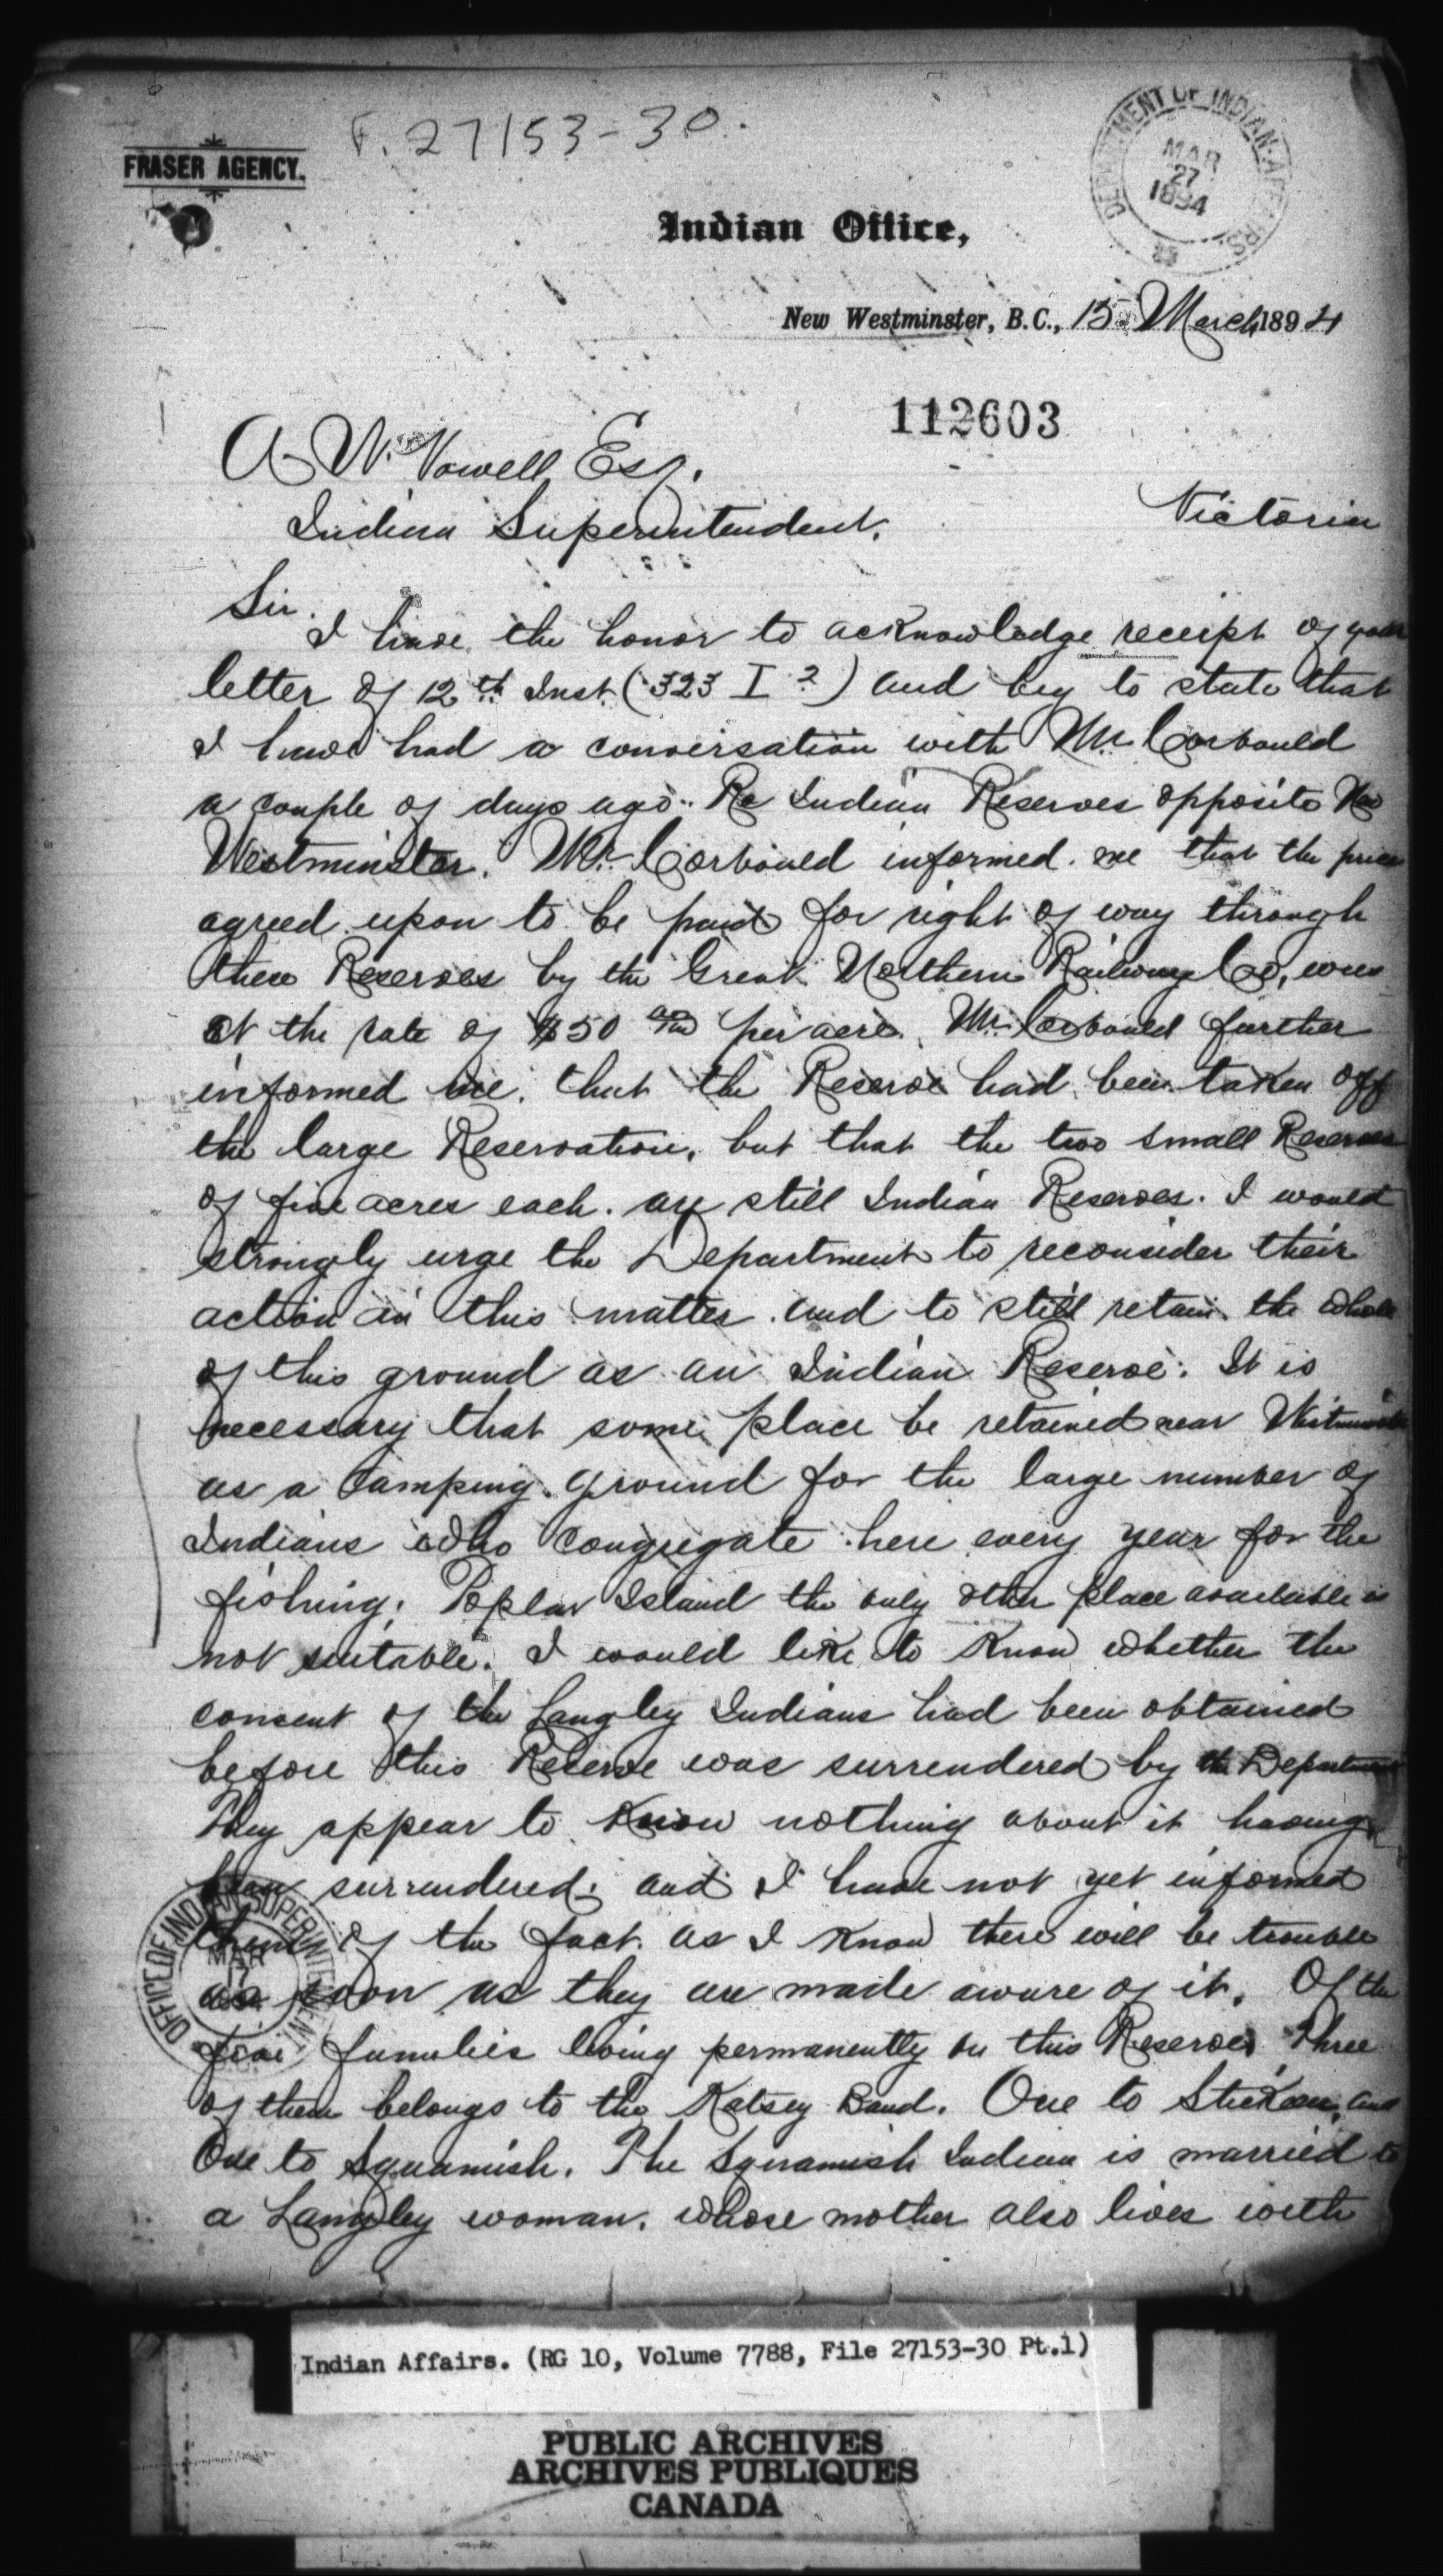 F. 27153-30.
FRASER AGENCY.
DEPARTMENT OF INDIAN AFFAIRS.
MAR
27
1894
Indian Office,
New Westminster, B.C., 15 March 1894
112603
A. W. Vowell, Esq.
Indian Superintendent. Victoria
Sir.
I have the honor to acknowledge receipt of your
letter of 12th Inst. (323 I 2) and beg to state that
I have had a conversation with Mr Corbould
a couple of days ago. Re Indian Reserves opposite New
Westminster. Mr. Corbould informed me that the price
agreed upon to be paid for right of way through
these Reserves by the Great Northern Railway Co, was
at the rate of $50 00/100 per acre. Mr Corbould further
informed me. that the Reserve had been taken off
the large Reservation, but that the two small Reserves
of five acres each. are still Indian Reserves. I would
strongly urge the Department to reconsider their
action in this matter. and to still retain the whole
of this ground as an Indian Reserve. It is
necessary that some place be retained near Westminster
as a camping ground for the large number of
Indians who congregate here every year for the
fishing. Poplar Island the only other place available is
not suitable. I would like to know whether the
consent of the Langley Indians had been obtained
before this Reserve was surrendered by the Department
They appear to know nothing about it having
been surrendered; and I have not yet informed
them of the fact. as I know there will be trouble
as soon as they are made aware of it. Of the
five families living permanently on this Reserve, Three
of them belongs to the Katsey Band. One to and
One to Squamish. The Squamish Indian is married to
a Langley woman. whose mother also lives with
OFFICE OF INDIAN SUPERINTENDENT.
MAR
17
Indian Affairs. (RG 10, Volume 7788, File 27153-30 Pt.1)
PUBLIC ARCHIVES
ARCHIVES PUBLIQUES
CANADA